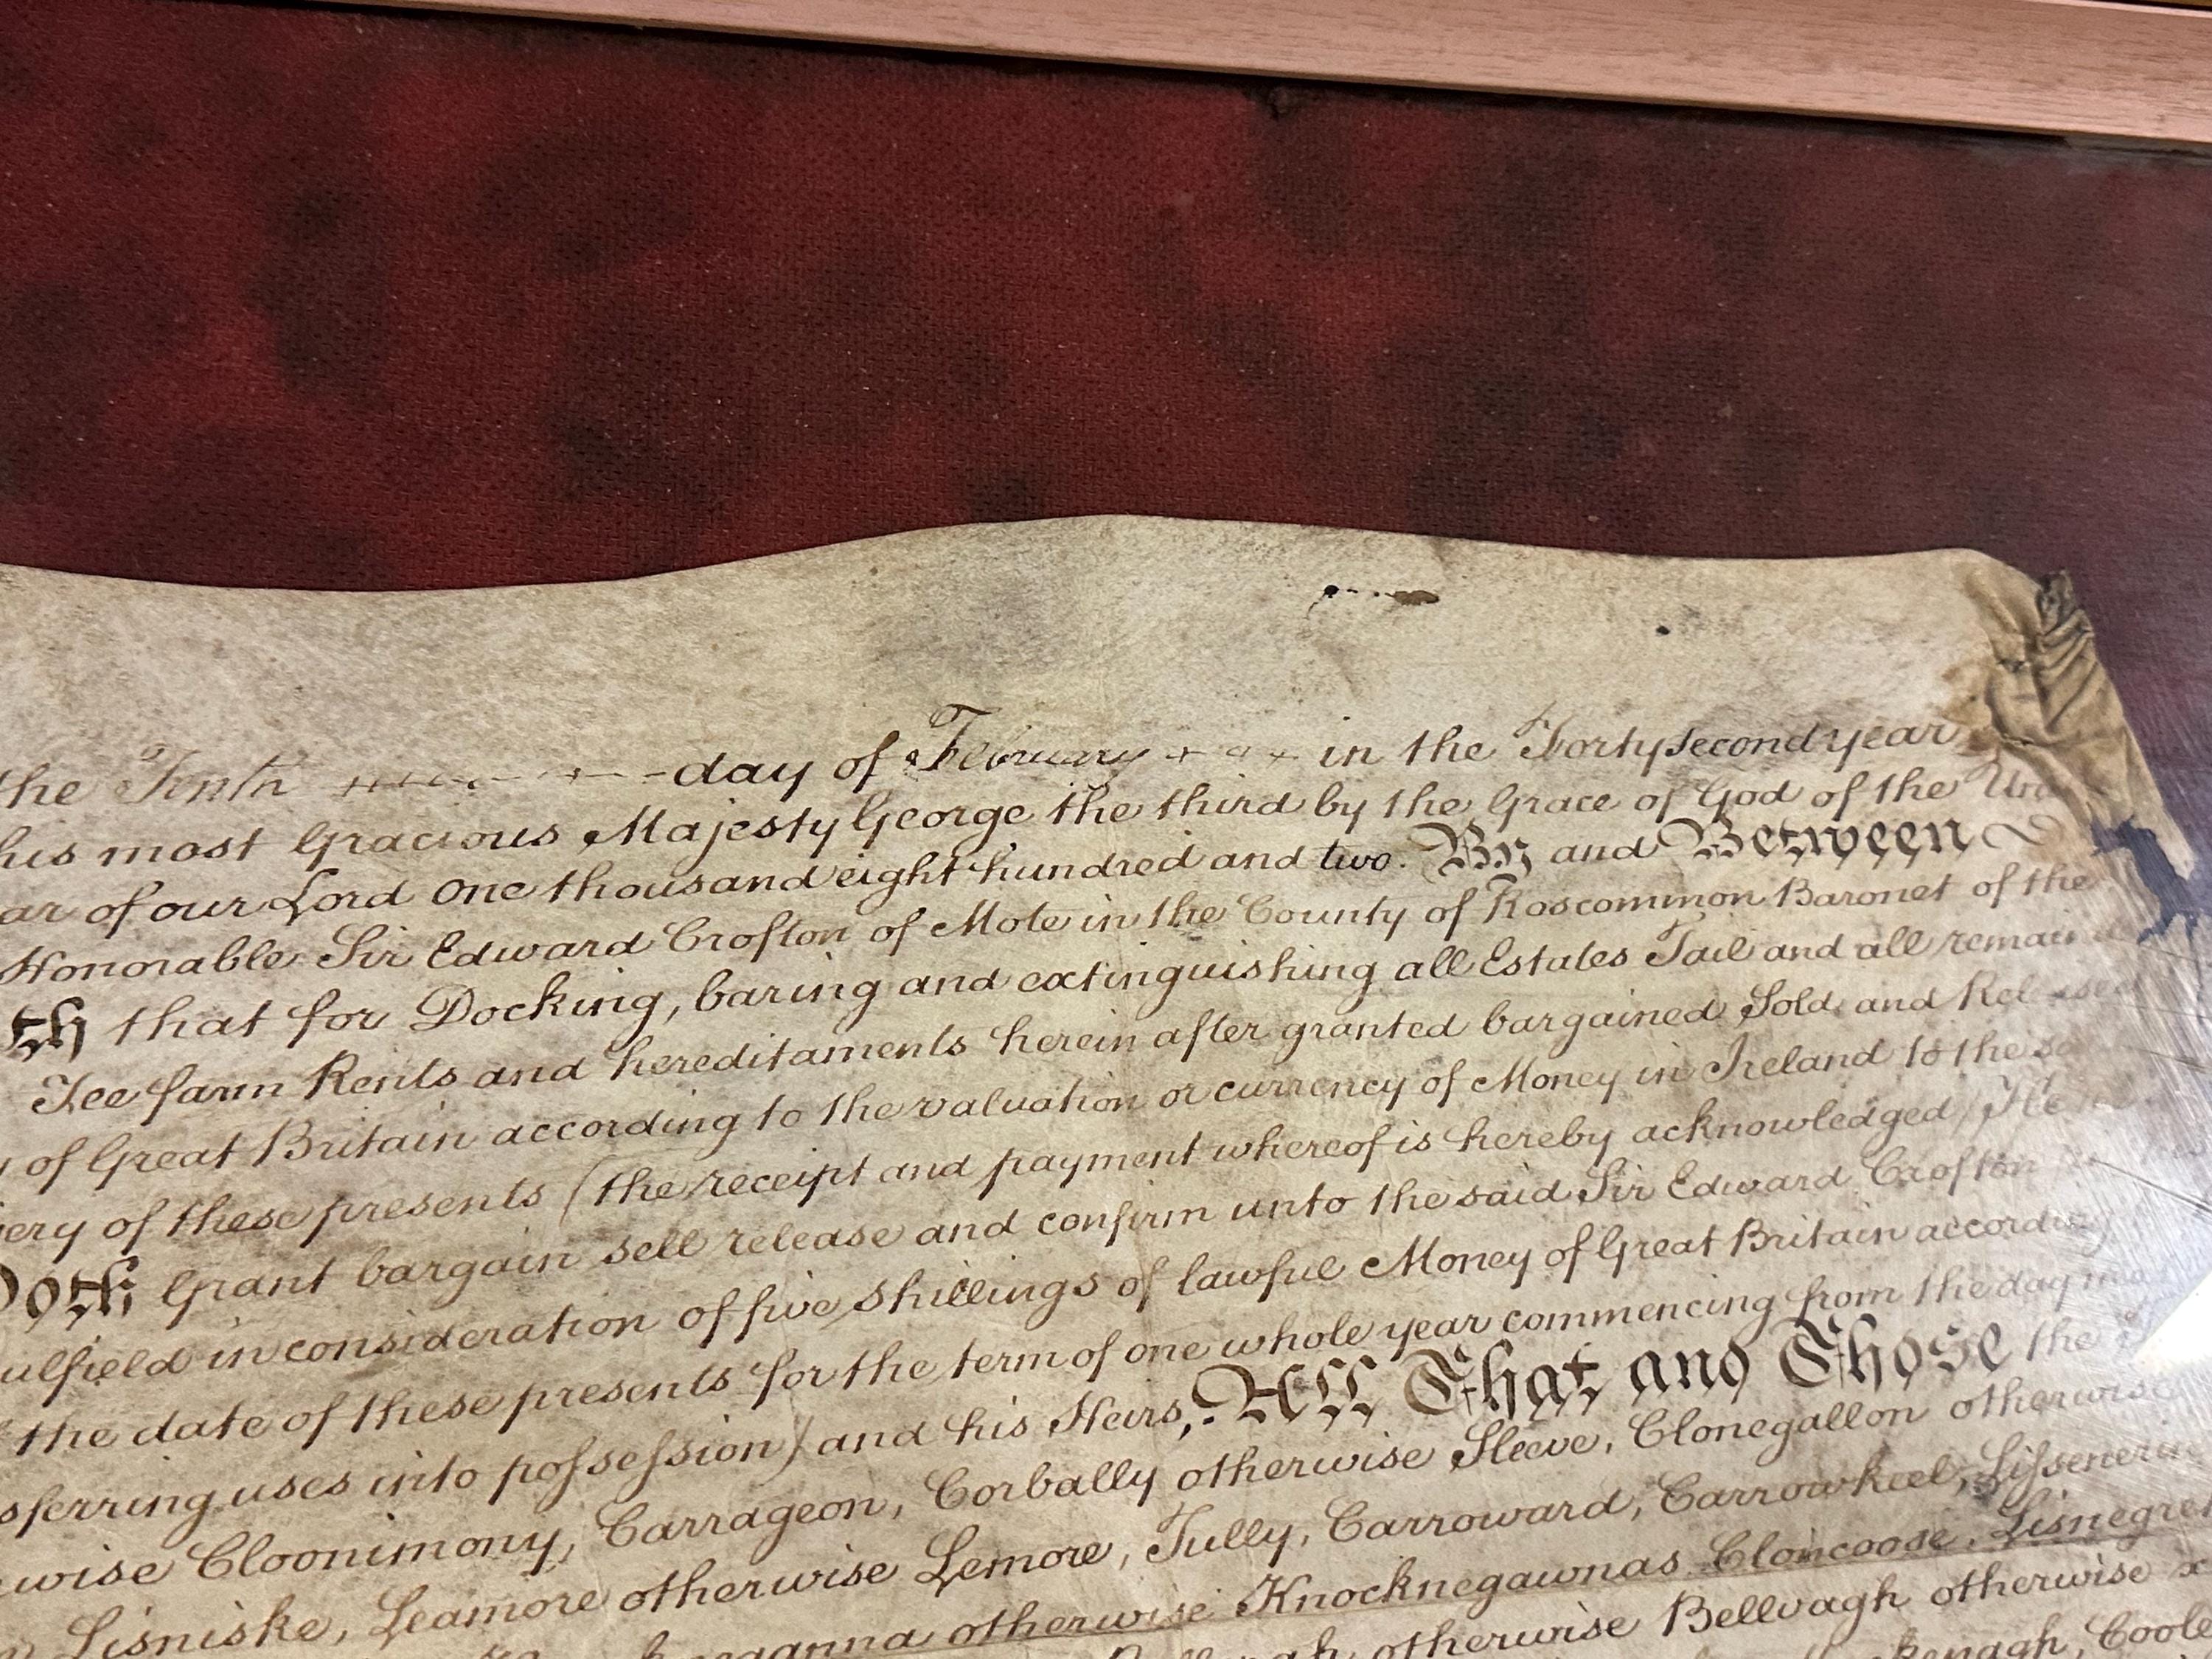 the Tenth day of February in the Forty second year
his most Gracious Majesty George the third by the Grace of God of the
of our Lord One thousand eight hundred and two. By and Between
Honorable Sir Edward Crofton of Mote in the County of Roscommon Baronet of the
that for Docking, baring and extinguishing all Estates Tail and all
Fee farm Rents and hereditaments herein after granted bargained Sold and Released
of Great Britain according to the valuation or currency of Money in Ireland to the said
of these presents (the receipt and payment whereof is hereby acknowledged) He
Doth Grant bargain sell release and confirm unto the said Sir Edward Crofton
ulfield in consideration of five shillings of lawful Money of Great Britain according
the date of these presents for the term of one whole year commencing from the day
sferring uses into possession) and his Heirs, All That and Those the
wise Cloonimony, Carrageon, Corbally otherwise Sleeve, Clonegallon otherwise
Lisniske, Leamore otherwise Lemore, Tully, Carroward, Carrowkeel,
otherwise Knocknegawnas Cloncoose, Lisnegre
otherwise Bellvagh otherwise